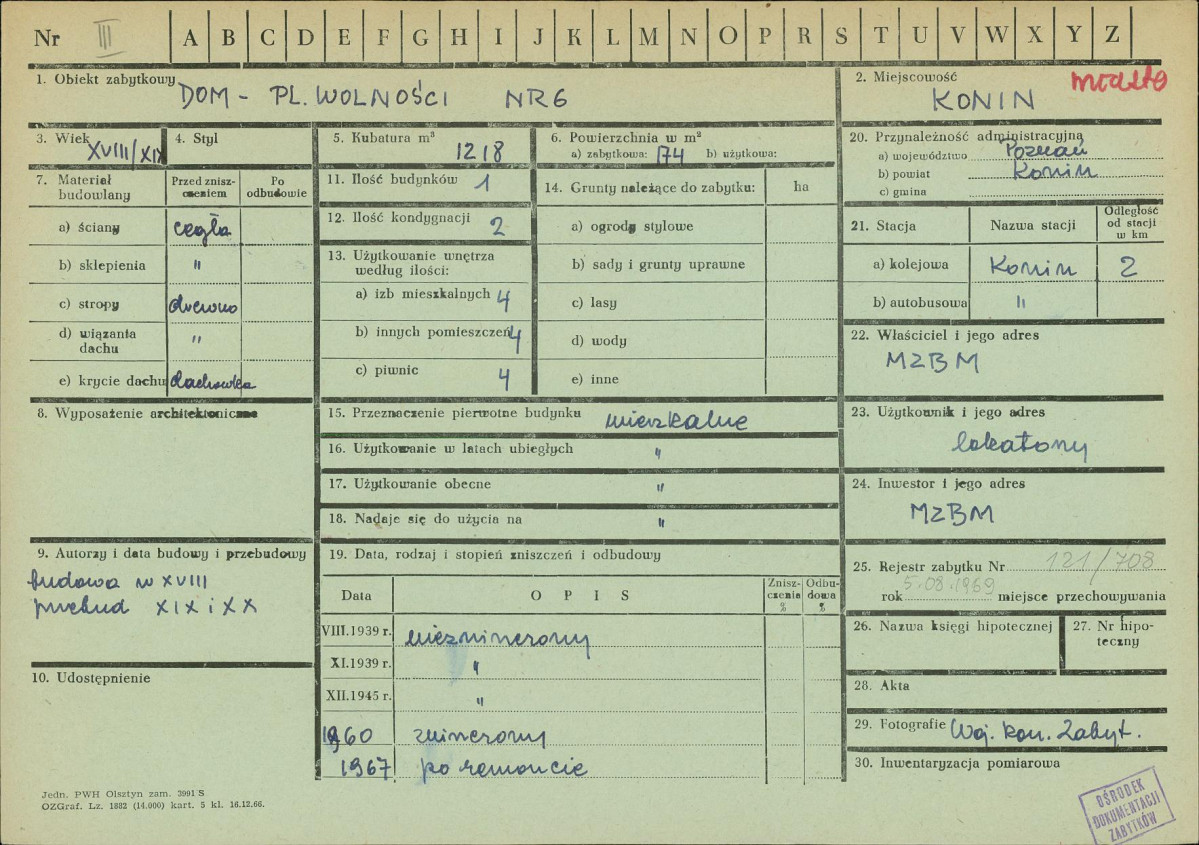 Nr III A B C D E F G H I J K L M N O P R S T U V W X Y Z
1. Obiekt zabytkowy DOM - PL. WOLNOŚCI NR 6
2. Miejscowość miasto
KONIN
3. Wiek XVIII/XIX
4. Styl
5. Kubatura m³ 1218
6. Powierzchnia w m²
a) zabytkowa: 174 b) użytkowa:
7. Materiał budowlany
Przed zniszczeniem
Po odbudowie
a) ściany cegła
b) sklepienia "
c) stropy drewno
d) wiązania dachu "
e) krycie dachu dachówka
8. Wyposażenie architektoniczne
9. Autorzy i data budowy i przebudowy
budowa w XVIII
przebud XIX i XX
10. Udostępnienie
11. Ilość budynków 1
12. Ilość kondygnacji 2
13. Użytkowanie wnętrza według ilości:
a) izb mieszkalnych 4
b) innych pomieszczeń 4
c) piwnic 4
14. Grunty należące do zabytku: ha
a) ogrody stylowe
b) sady i grunty uprawne
c) lasy
d) wody
e) inne
15. Przeznaczenie pierwotne budynku mieszkalne
16. Użytkowanie w latach ubiegłych "
17. Użytkowanie obecne "
18. Nadaje się do użycia na "
19. Data, rodzaj i stopień zniszczeń i odbudowy
Data
OPIS
Zniszczenia %
Odbudowa %
VIII.1939 r. niezniszczony
XI.1939 r. "
XII.1945 r. "
1960 zniszczony
1967 po remoncie
20. Przynależność administracyjna
a) województwo Poznań
b) powiat Konin
c) gmina
21. Stacja
Nazwa stacji
Odległość od stacji w km
a) kolejowa Konin 2
b) autobusowa "
22. Właściciel i jego adres
MZBM
23. Użytkownik i jego adres
lokatorzy
24. Inwestor i jego adres
MZBM
25. Rejestr zabytku Nr 121/708
rok 5.08.1969 miejsce przechowywania
26. Nazwa księgi hipotecznej
27. Nr hipoteczny
28. Akta
29. Fotografie Woj. kon. Zabyt.
30. Inwentaryzacja pomiarowa
Jedn. PWH Olsztyn zam. 3991 S
OZGraf. Lz. 1882 (14.000) kart. 5 kl. 16.12.66.
OŚRODEK
DOKUMENTACJI
ZABYTKÓW